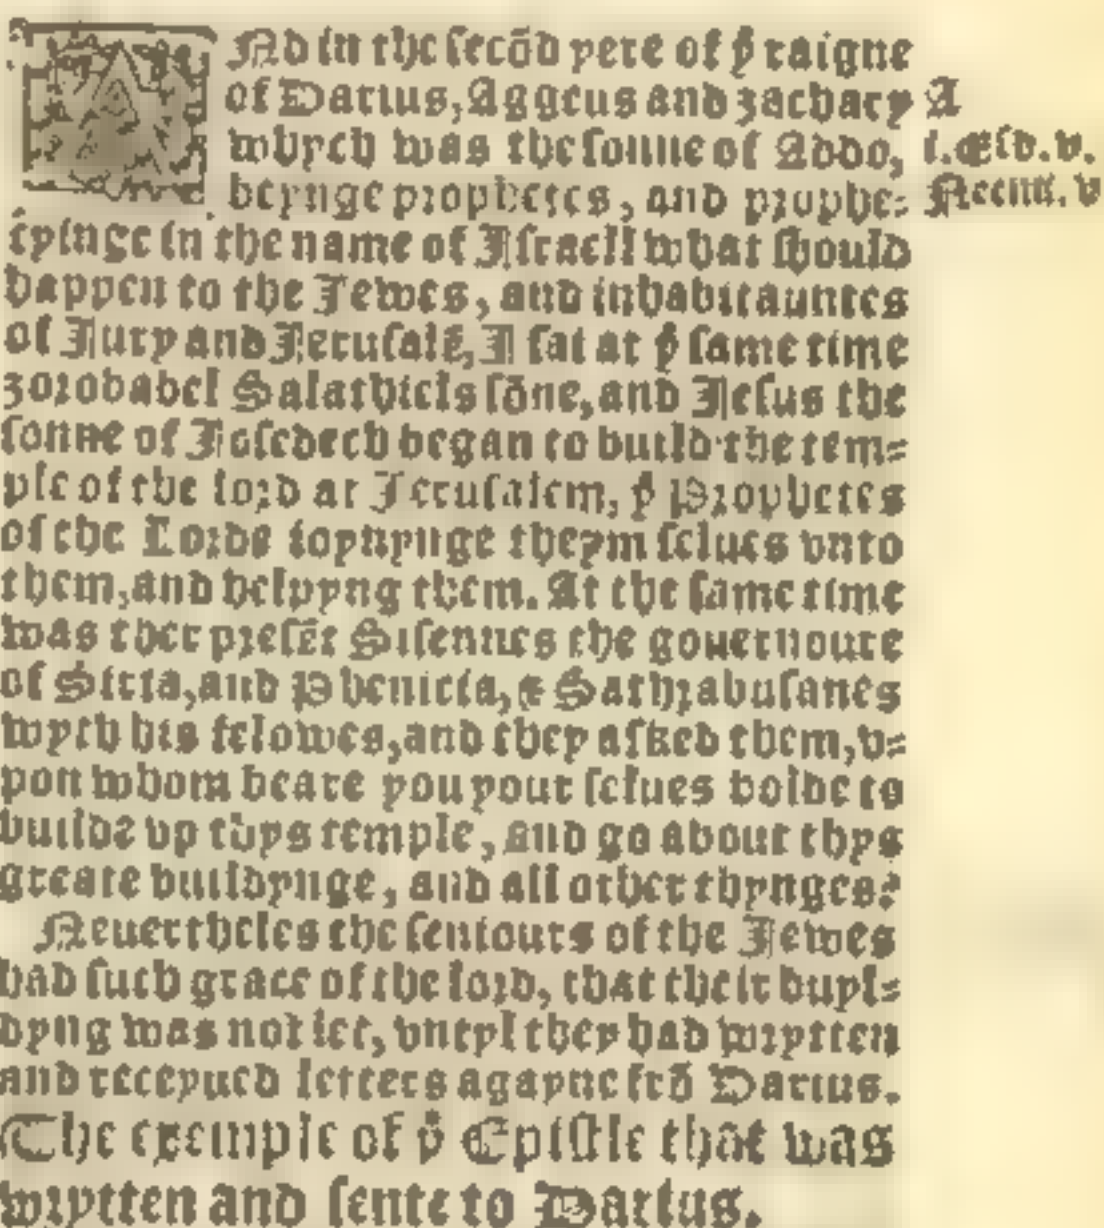 ANd in the secōd yere of yͤ raigne
of Darius, Aggeus and zachary
whych was the sonne of Addo,
beynge prophetes, and prophe-
cyinge in the name of Israell what should
happen to the Jewes, and inhabitauntes
of Jury and Jerusalē, I sat at yͤ same time
zorobabel Salathiels sōne, and Jesus the
sonne of Josedech began to build the tem-
ple of the lord at Jerusalem, yͤ Prophetes
of the Lorde ioynynge theym selues vnto
them, and helpyng them. At the same time
was ther presēt Sisennes the gouernoure
of Siria, and Phenicia, & Sathrabusanes
wyth his felowes, and they asked them, v-
pon whom beare you your selues bolde to
builde vp thys temple, and go about thys
greate buildynge, and all other thynges?
Neuertheles the seniours of the Jewes
had such grace of the lord, that their buyl-
dyng was not let, vntyl they had wrytten
and receyued letters agayne frō Darius.
The exemple of yͤ Epistle that was
wrytten and sente to Darius.
A
i.Esd.v.